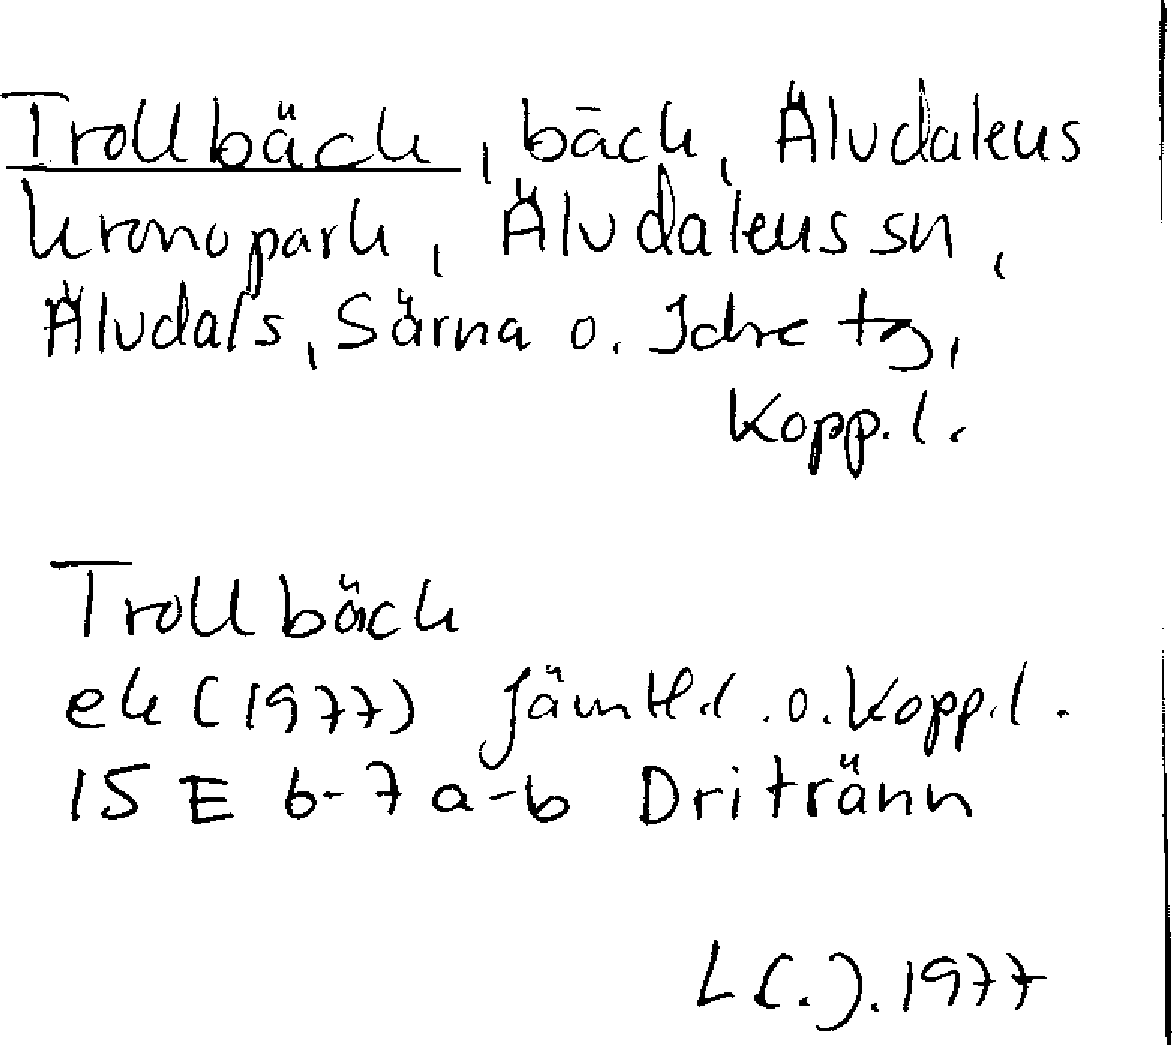 Trollbäck, bäck, Älvdalens
kronopark, Älvdalens sn,
Älvdals, Särna o. Idre tg,
Kopp.l.
Trollbäck
ek (1977) Jämtl.l. o. Kopp.l.
15 E 6-7 a-b Dritränn
L(.). 1977